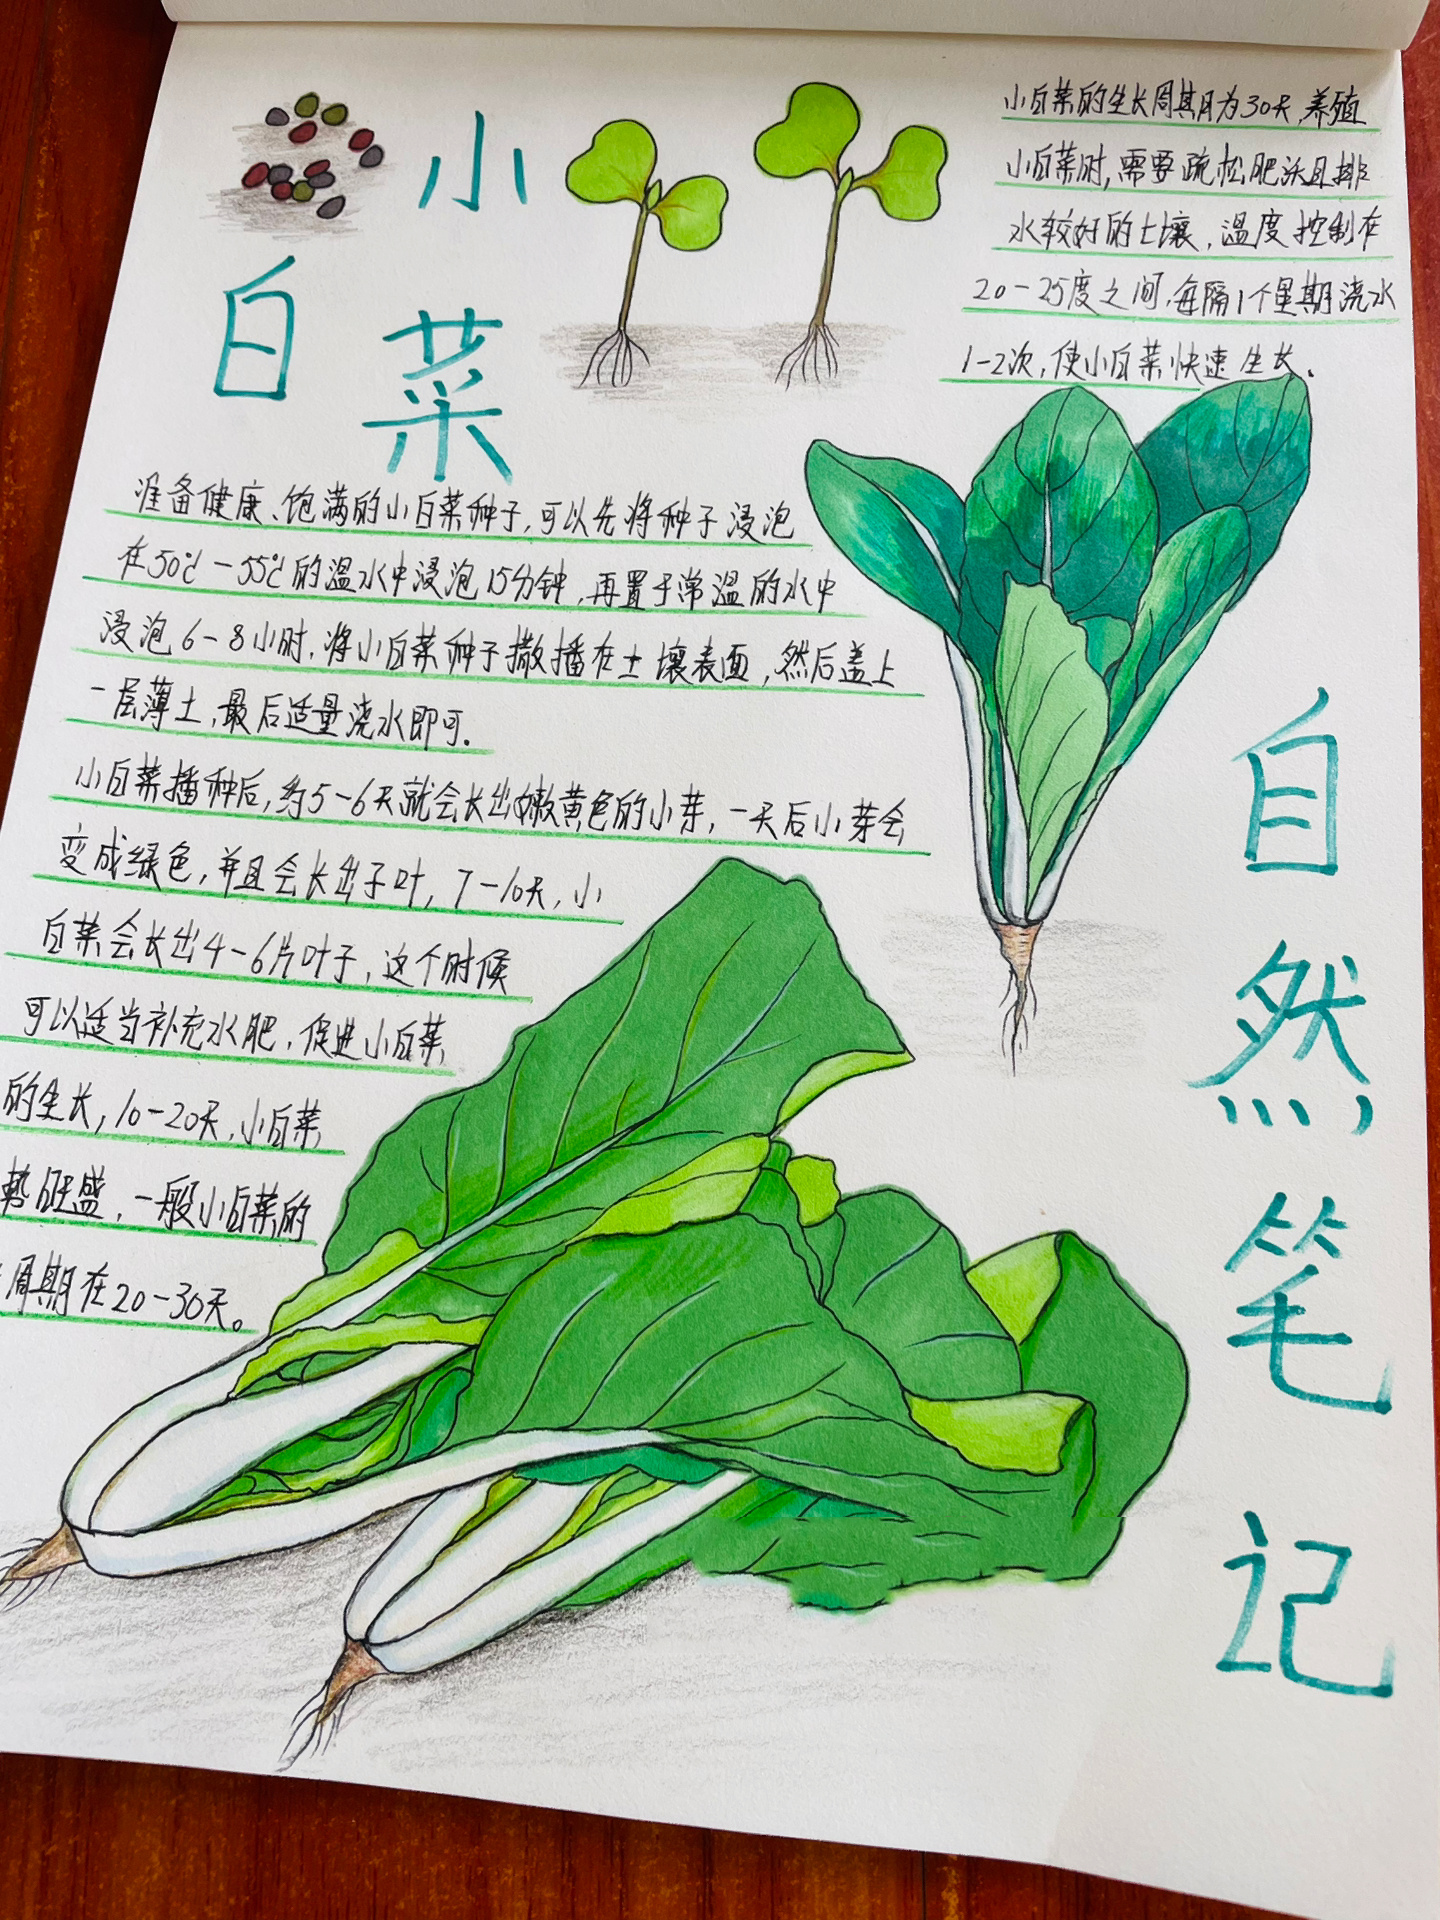 小白菜
小白菜的生长周期为30天,养殖
小白菜时,需要疏松肥沃且排
水较好的土壤,温度控制在
20-25度之间,每隔1个星期浇水
1-2次,使小白菜快速生长。
准备健康、饱满的小白菜种子,可以先将种子浸泡
在50℃-55℃的温水中浸泡15分钟,再置于常温的水中
浸泡6-8小时,将小白菜种子撒播在土壤表面,然后盖上
一层薄土,最后适量浇水即可。
小白菜播种后,约5-6天就会长出嫩黄色的小芽,一天后小芽会
变成绿色,并且会长出子叶,7-10天,小
白菜会长出4-6片叶子,这个时候
可以适当补充水肥,促进小白菜
的生长,10-20天,小白菜
势旺盛,一般小白菜的
周期在20-30天。
自然笔记